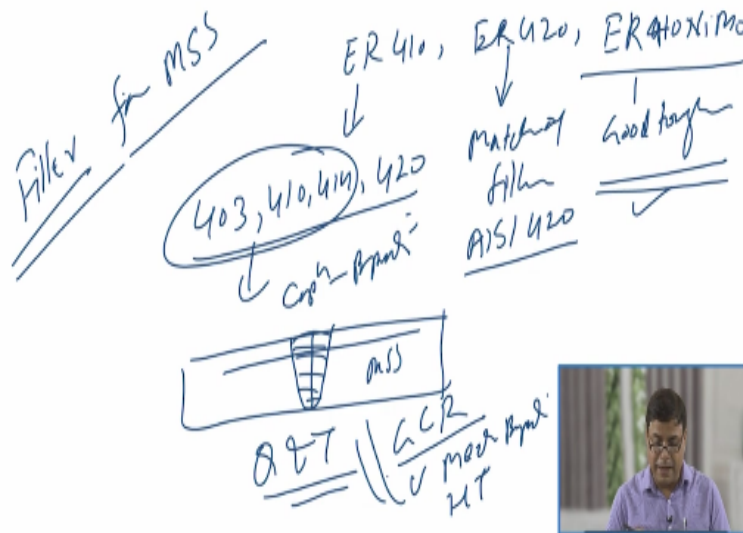 Filler for MSS
ER410, ER420, ER410NiMo
403, 410, 414, 420
Matching
filler
AISI 420
Good tough
MSS
Q&T
V Mech
HT